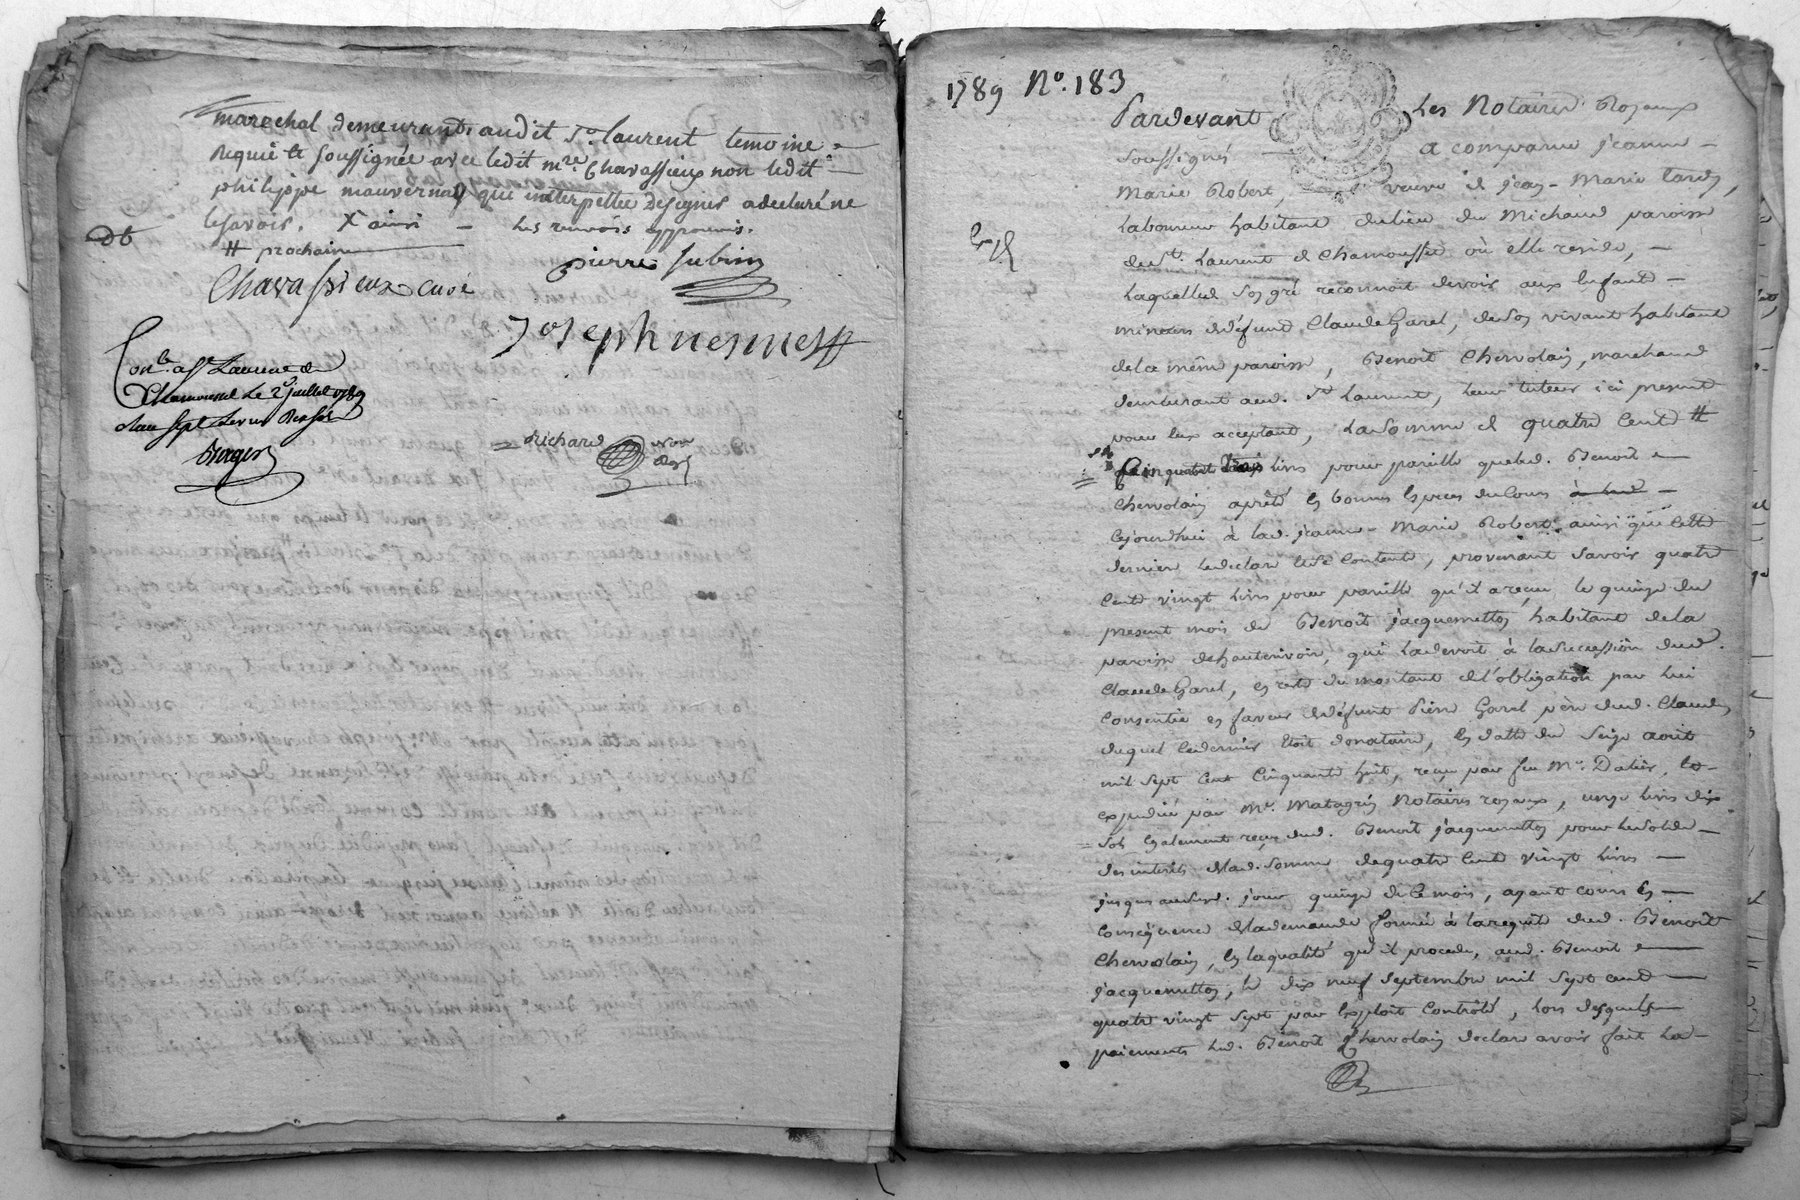 marechal demeurants audit St laurent temoins
requis et soussignée avec ledit mre Chavassieux non ledit
philippe mauvernay qui interpellée designer a declaré ne
le savoir. X ainsi — les renvois approuvés.
# prochain
pierre subrin
Chavassieux curé
Joseph nesme
Conlé a St Laurent de
Chamousset Le 2 juillet 1789
Reçu sept livres dix sols
Berger
Richard Nore
Roy
1789 No. 183
Pardevant Les Notaires Royaux
soussignés a comparue jeanne
Marie Robert, veuve de jean-Marie tardy,
Laboureur habitant du lieu du Michaud paroisse
de St Laurent de Chamousset où elle reside,
Laquelle de son gré reconnoit devoir aux Enfants
mineurs de défunt Claude Garel, de son vivant habitant
de la même paroisse, Benoit Chervolain, marchand
demeurant aud. St Laurent, leur tuteur ici present
pour eux acceptant, La somme de quatre Cent #
livres pour pareille que led. Benoit
Chervolain a prêté en bonnes Especes du Cours
Cejourdhui à lad. jeanne-Marie Robert, ainsi que Cette
derniere le declare et s'en Contente, provenant savoir quatre
Cent vingt livres pour pareille qu'il a reçue le quinze du
present mois de Benoit jacquemetton habitant de la
paroisse de hauterivoir, qui La devoit à la succession dud.
Claude Garel, en reste du montant de l'obligation par lui
Consentie en faveur de défunt Pierre Garel père dud. Claude,
duquel ce dernier étoit donataire, en datte du Seize aout
mil sept cent Cinquante huit, reçue par feu Me Dalier,
expediée par Me. Matagrin Notaires royaux, onze livres dix
sols Egalement reçus dud. Benoit jacquemetton pour le solde
des interets de lad. somme de quatre Cent vingt livres
jusques aud. jour quinze de Ce mois, ayant cours En
Conséquence de la demande formée à la requête dud. Benoit
Chervolain, En la qualité qu'il procede, aud. Benoit
jacquemetton, le dix neuf septembre mil sept cent
quatre vingt sept par Exploit Controlé, lors desquels
paiements led. Benoit Chervolain declare avoir fait La